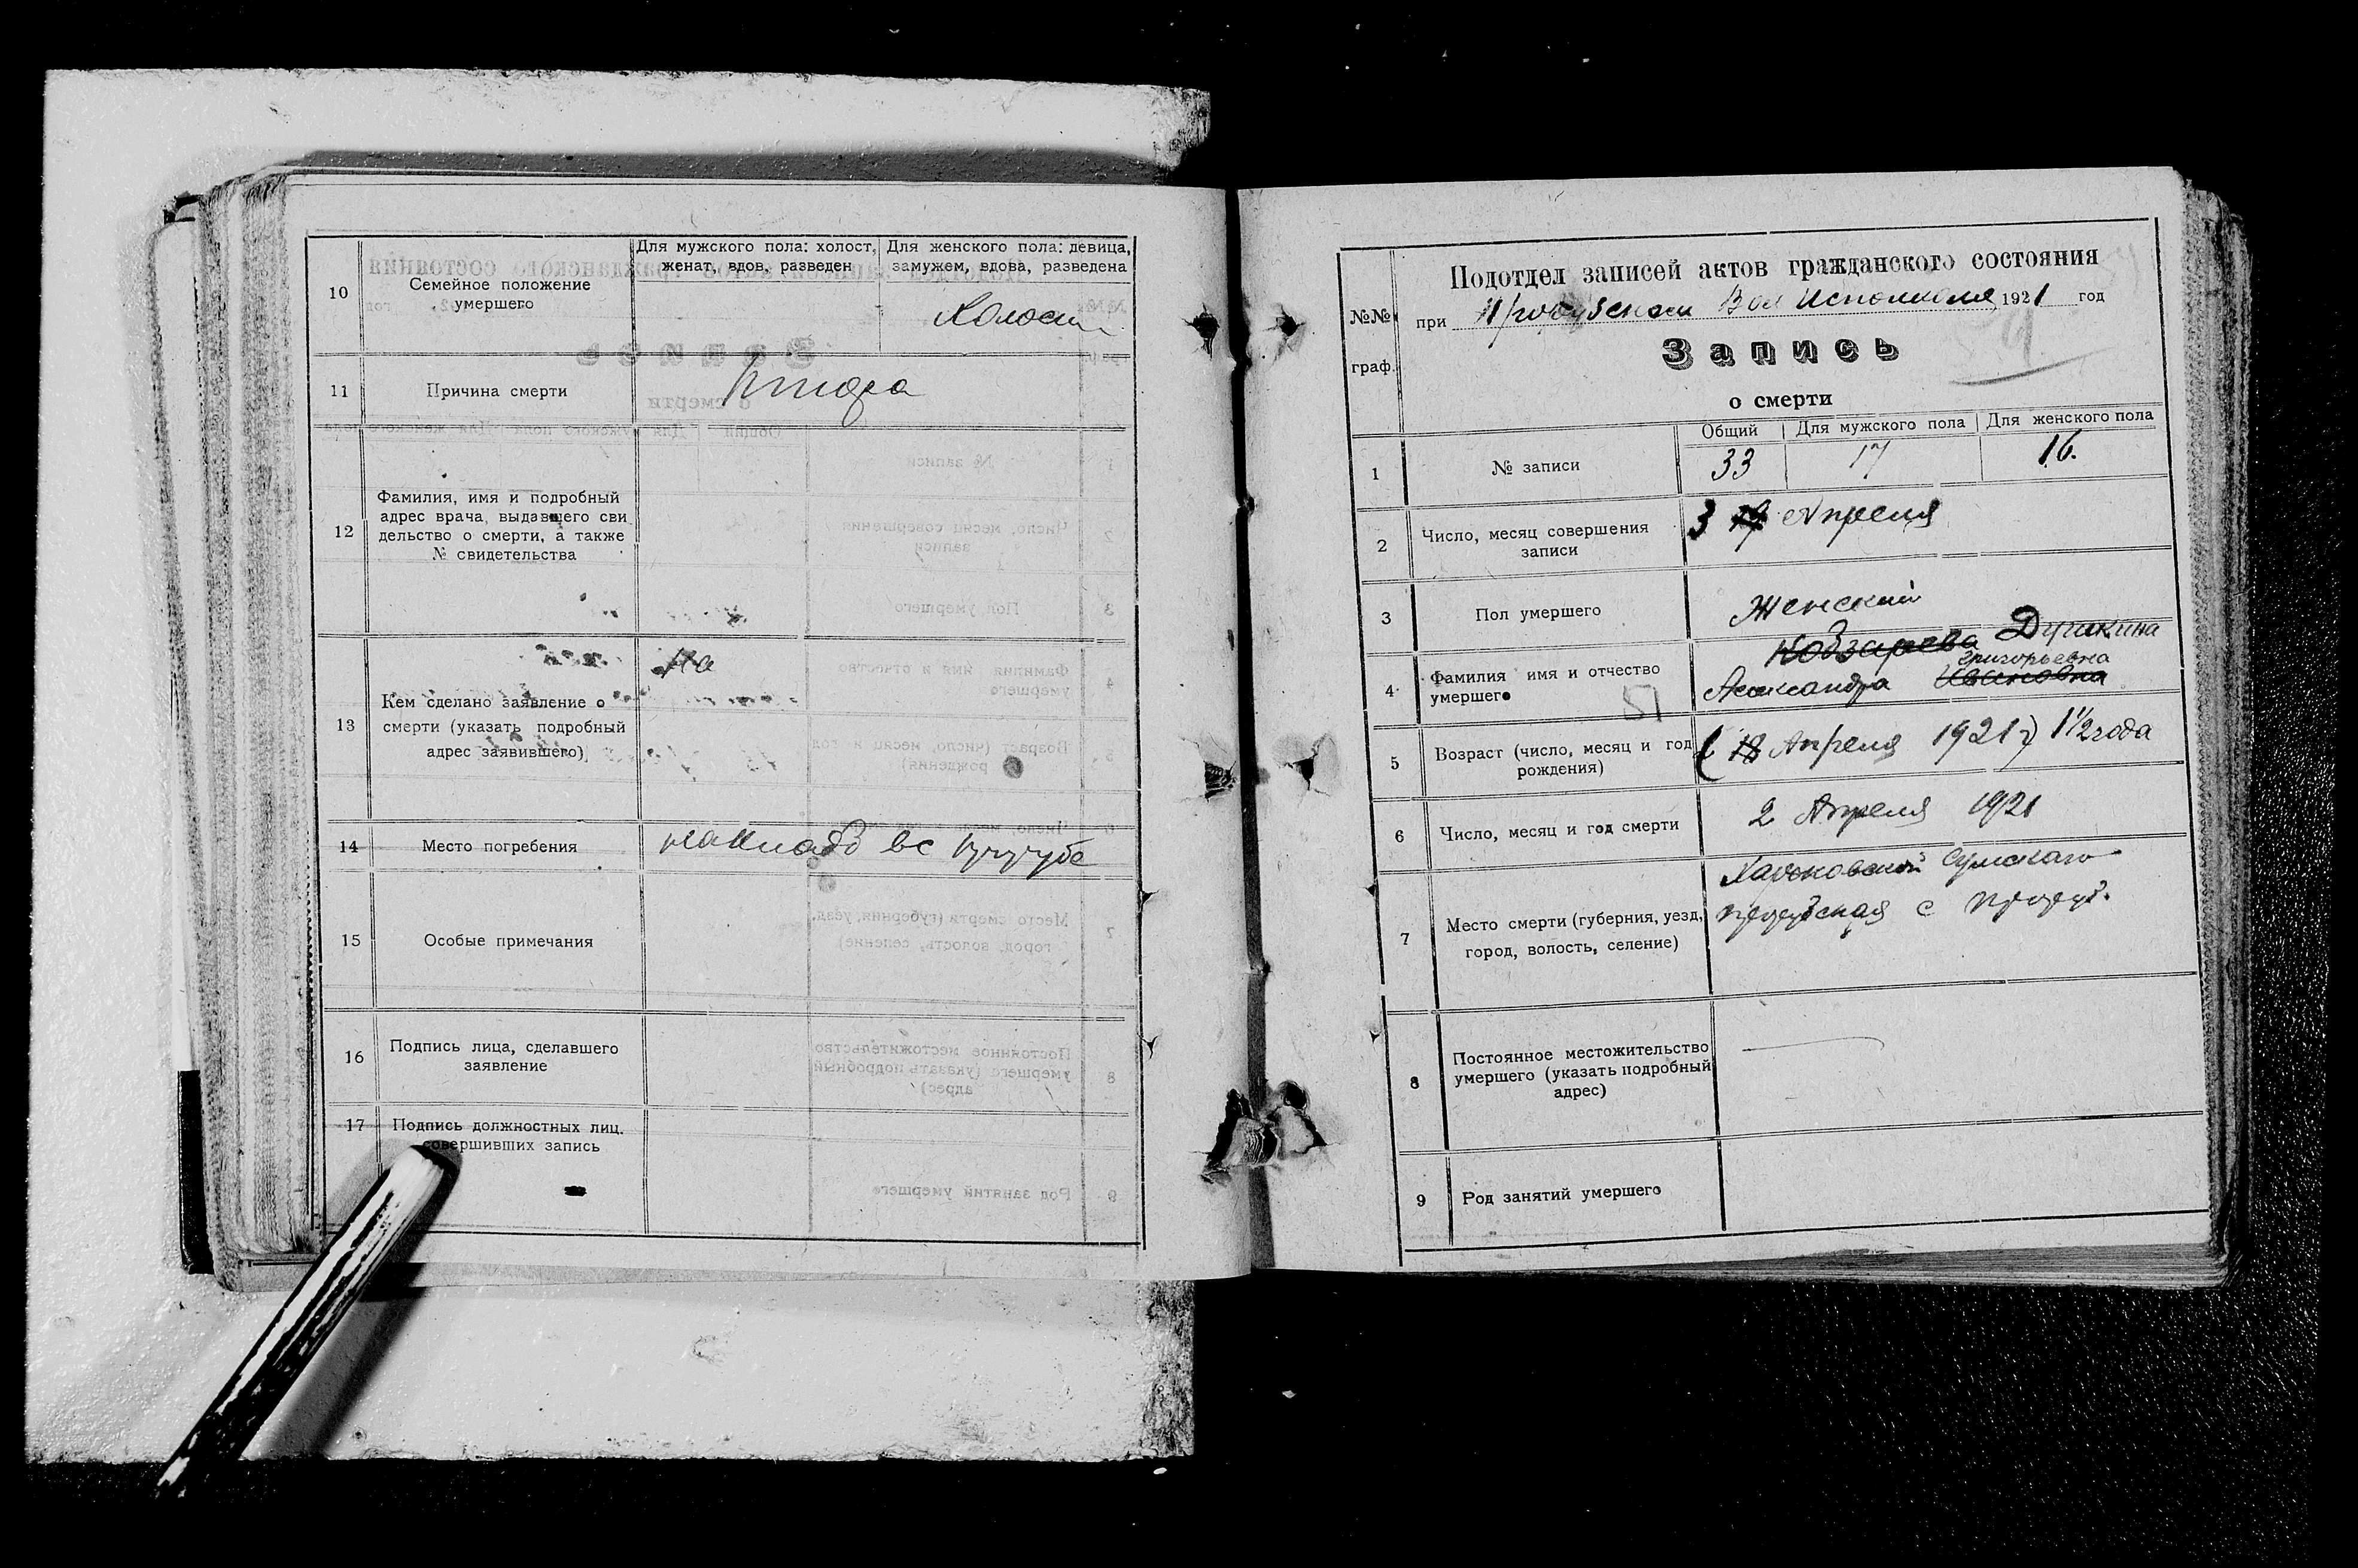 10
Семейное положение
умершего
Для мужского пола: холост,
женат, вдов, разведен
Для женского пола: девица,
замужем, вдова, разведена
Холост
11
Причина смерти
12
Фамилия, имя и подробный
адрес врача, выдавшего сви
дельство о смерти, а также
№ свидетельства
13
Кем сделано заявление о
смерти (указать подробный
адрес заявившего)
На
14
Место погребения
15
Особые примечания
16
Подпись лица, сделавшего
заявление
17
Подпись должностных лиц.
совершивших запись
№№
граф.
Подотдел записей актов гражданского состояния
при Вол Исполкоме 1921 год
Запись
о смерти
Общий
Для мужского пола
Для женского пола
1
№ записи
33
17
16.
2
Число, месяц совершения
записи
3 Апреля
3
Пол умершего
Женский
4
Фамилия имя и отчество
умершего
Кобзарева
Григорьевна
Александра Ивановна
51
5
Возраст (число, месяц и год
рождения)
(18 Апреля 1921) 1 1/2 года
6
Число, месяц и год смерти
2 Апреля 1921
7
Место смерти (губерния, уезд,
город, волость, селение)
Харьковской Сумскаго
8
Постоянное местожительство
умершего (указать подробный
адрес)
9
Род занятий умершего